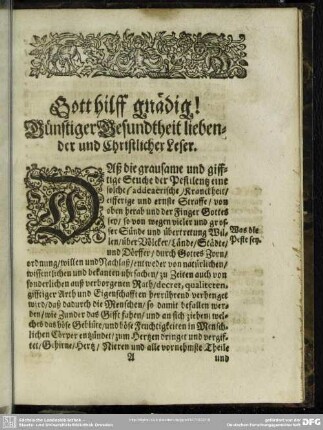 Gott hilff gnädig!
Günstiger Gesundtheit lieben-
der und Christlicher Leser.
DAß die grausame und giff-
tige Seuche der Pestilentz eine
solche/ addenerische/ Kranckheit/
eifferige und ernste Straffe/ von
oben herab und der Finger Gottes
sey/ so von wegen vieler und gros-
ser Sünde und übertretung Wil-
len/ über Völcker/ Lände/ Städte/
und Dörffer/ durch Gottes Zorn/
Was die
Peste sey.
ordnung/ willen und Nachlaß/ entweder von natürlichen/
wissentlichen und bekanten uhrsachen/ zu Zeiten auch von
sonderlichen auß verborgenen Rath/ decret, qualiteten/
gifftiger Arth und Eigenschafften herrührend verhenget
wird/ daß dadurch die Menschen/ so damit befallen wer-
den/ wie Zunder das Gifft fahen/ und an sich ziehen: wel-
ches das böse Geblüte/ und böse Feuchtigkeiten in Mensch-
lichen Cörper entzündet/ zum Hertzen dringet und vergif-
tet/ Gehirne/ Hertz/ Nieren und alle vornehmste Theile
A
und